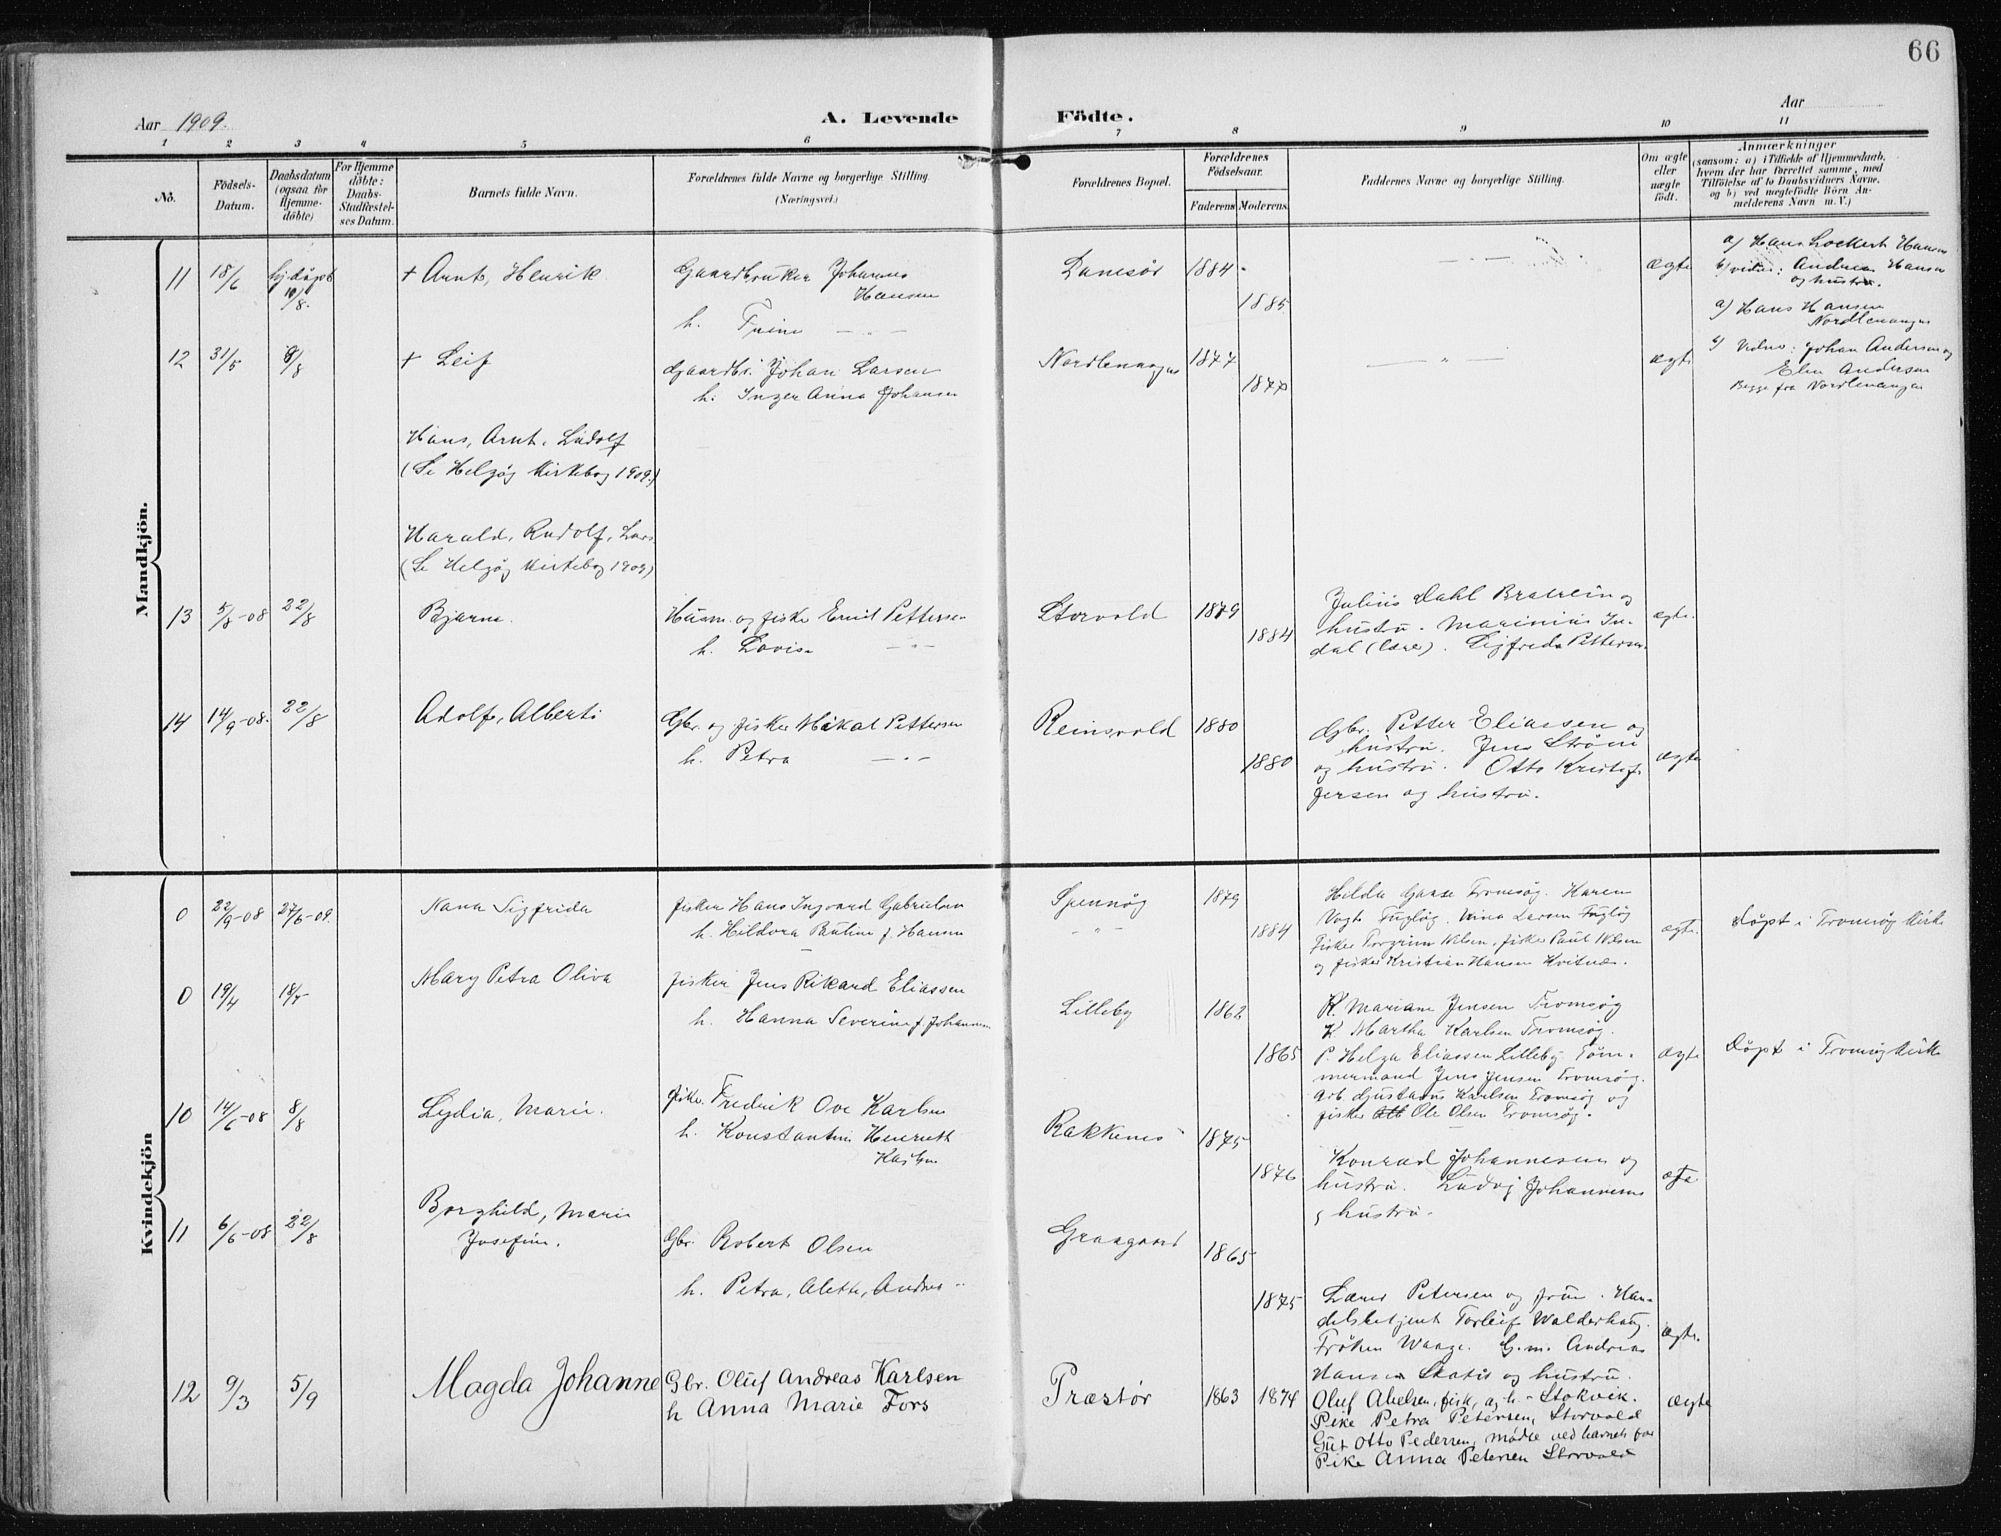 66
Aar 1909.
A. Levende Födte.
Aar
1 2 3 4 5 6 7 8 9 10 11
No.
Födsels-Datum.
Daabsdatum (ogsaa for Hjemme-döbte)
For Hjemme döbte: Daabs-Stadfæstel-ses Datum.
Barnets fulde Navn.
Forældrenes fulde Navne og borgerlige Stilling. (Næringsvei.)
Forældrenes Bopæl.
Forældrenes Födselsaar.
Faderens Moderens
Faddernes Navne og borgerlige Stilling.
Om ægte eller uægte födt.
Anmærkninger
(saasom: a) i Tilfælde af Hjemmedaab, hvem der har forrettet samme, med Tilföielse af to Daabsvidners Navne, og b) ved uægtefödte Börn An-melderens Navn m. V.)
Mandkjön.
11 18/6 hj.døpt 10/8. + Arnt, Henrik
Gaardbruker Johannes Hansen
h. Trine — " —
1884 1885 ægte
a) Hans Lockert Hansen
b) vidner: Andreas Hansen og hustru.
12 31/5 8/8 + Leif
Gaardbr. Johan Larsen
h. Inger Anna Johansen
Nordlenangen 1877 1877 ægte
a) Hans Hansen Nordlenangen
b) Vidner: Johan Andersen og
Elen Andersen
Begge fra Nordlenangen
Hans, Arnt, Ludolf
(Se Helgøy Kirkebog 1909.)
Harald, Rudolf, Lars
(Se Helgøy Kirkebog 1909)
13 5/8-08 22/8 Bjarne.
Husm. og fisker Emil Pettersen
h. Lovise — " —
Storvold 1879 1884
Julius Dahl Bratrein og
hustru. Marinius In-
dal (Lærer). Sigfreda Pettersen.
ægte.
14 14/9-08. 22/8 Adolf, Albert
Gbr. og fisker Mikal Pettersen
h. Petra — " —
Reinsvold 1880 1880
Gbr. Petter Eliassen og
hustru. Jens Strøm
og hustru. Otto Kristof-
fersen og hustru.
ægte
Kvindekjön
0 22/9-08 27/6-09. Nana Sigfrida
fisker Hans Ingvard Gabrielsen
h. Hildora Pauline f. Hansen
Spennøg 1879 1884
Hilda Tromsøg. Karen
Vogts Fugløg. Nina Larsen Fugløg
fisker Torgrim Nilsen, fisker Paul Nilsen
og fisker Kristian Hansen Kvitnæs.
ægte. Døpt i Tromsøg Kirke
0 19/4 18/7 Mary Petra Oliva
fisker Jens Rikard Eliassen
h. Hanna Severine f. Johannesen
Lilleby 1862 1865
K. Mariane Jensen Tromsøg
K Martha Karlsen Tromsøg.
P. Helga Eliassen Lilleby. Tøm-
mermand Jens Jensen Tromsøg.
Arb. Gustavus Karlsen Tromsøg og
fisker Ole Olsen Tromsøg.
ægte Døpt i Tromsøg Kirke
10 14/6-08 8/8 Lydia, Marie.
fisker Fredrik Ove Karlsen
h. Konstantine Henriette Karlsen
Rakkenes 1875 1876
Konrad Johannesen og
hustru. Ludvig Johannesen
og hustru.
ægte
11 6/6-08 22/8 Borghild, Marie
Josefine.
Gbr. Robert Olsen
h. Petra, Aleth, Andrea
Graagaard 1865 1875
Lærer Petersen og frue. Han-
delsbetjent Torleif Walderhaug.
Frøken Waage. G.m. Andreas
Hansen Skatø og hustru.
ægte.
12 9/3 5/9 Magda Johanne
Gbr. Oluf Andreas Karlsen
h Anna Marie Fors
Præstør 1863 1874
Oluf Abelsen, fisk, og h. - Stokvik.
Pike Petra Petersen, Storvold
Gut Otto Pedersen, mødte ved barnets far
Pike Anna Petersen Storvold
ægte